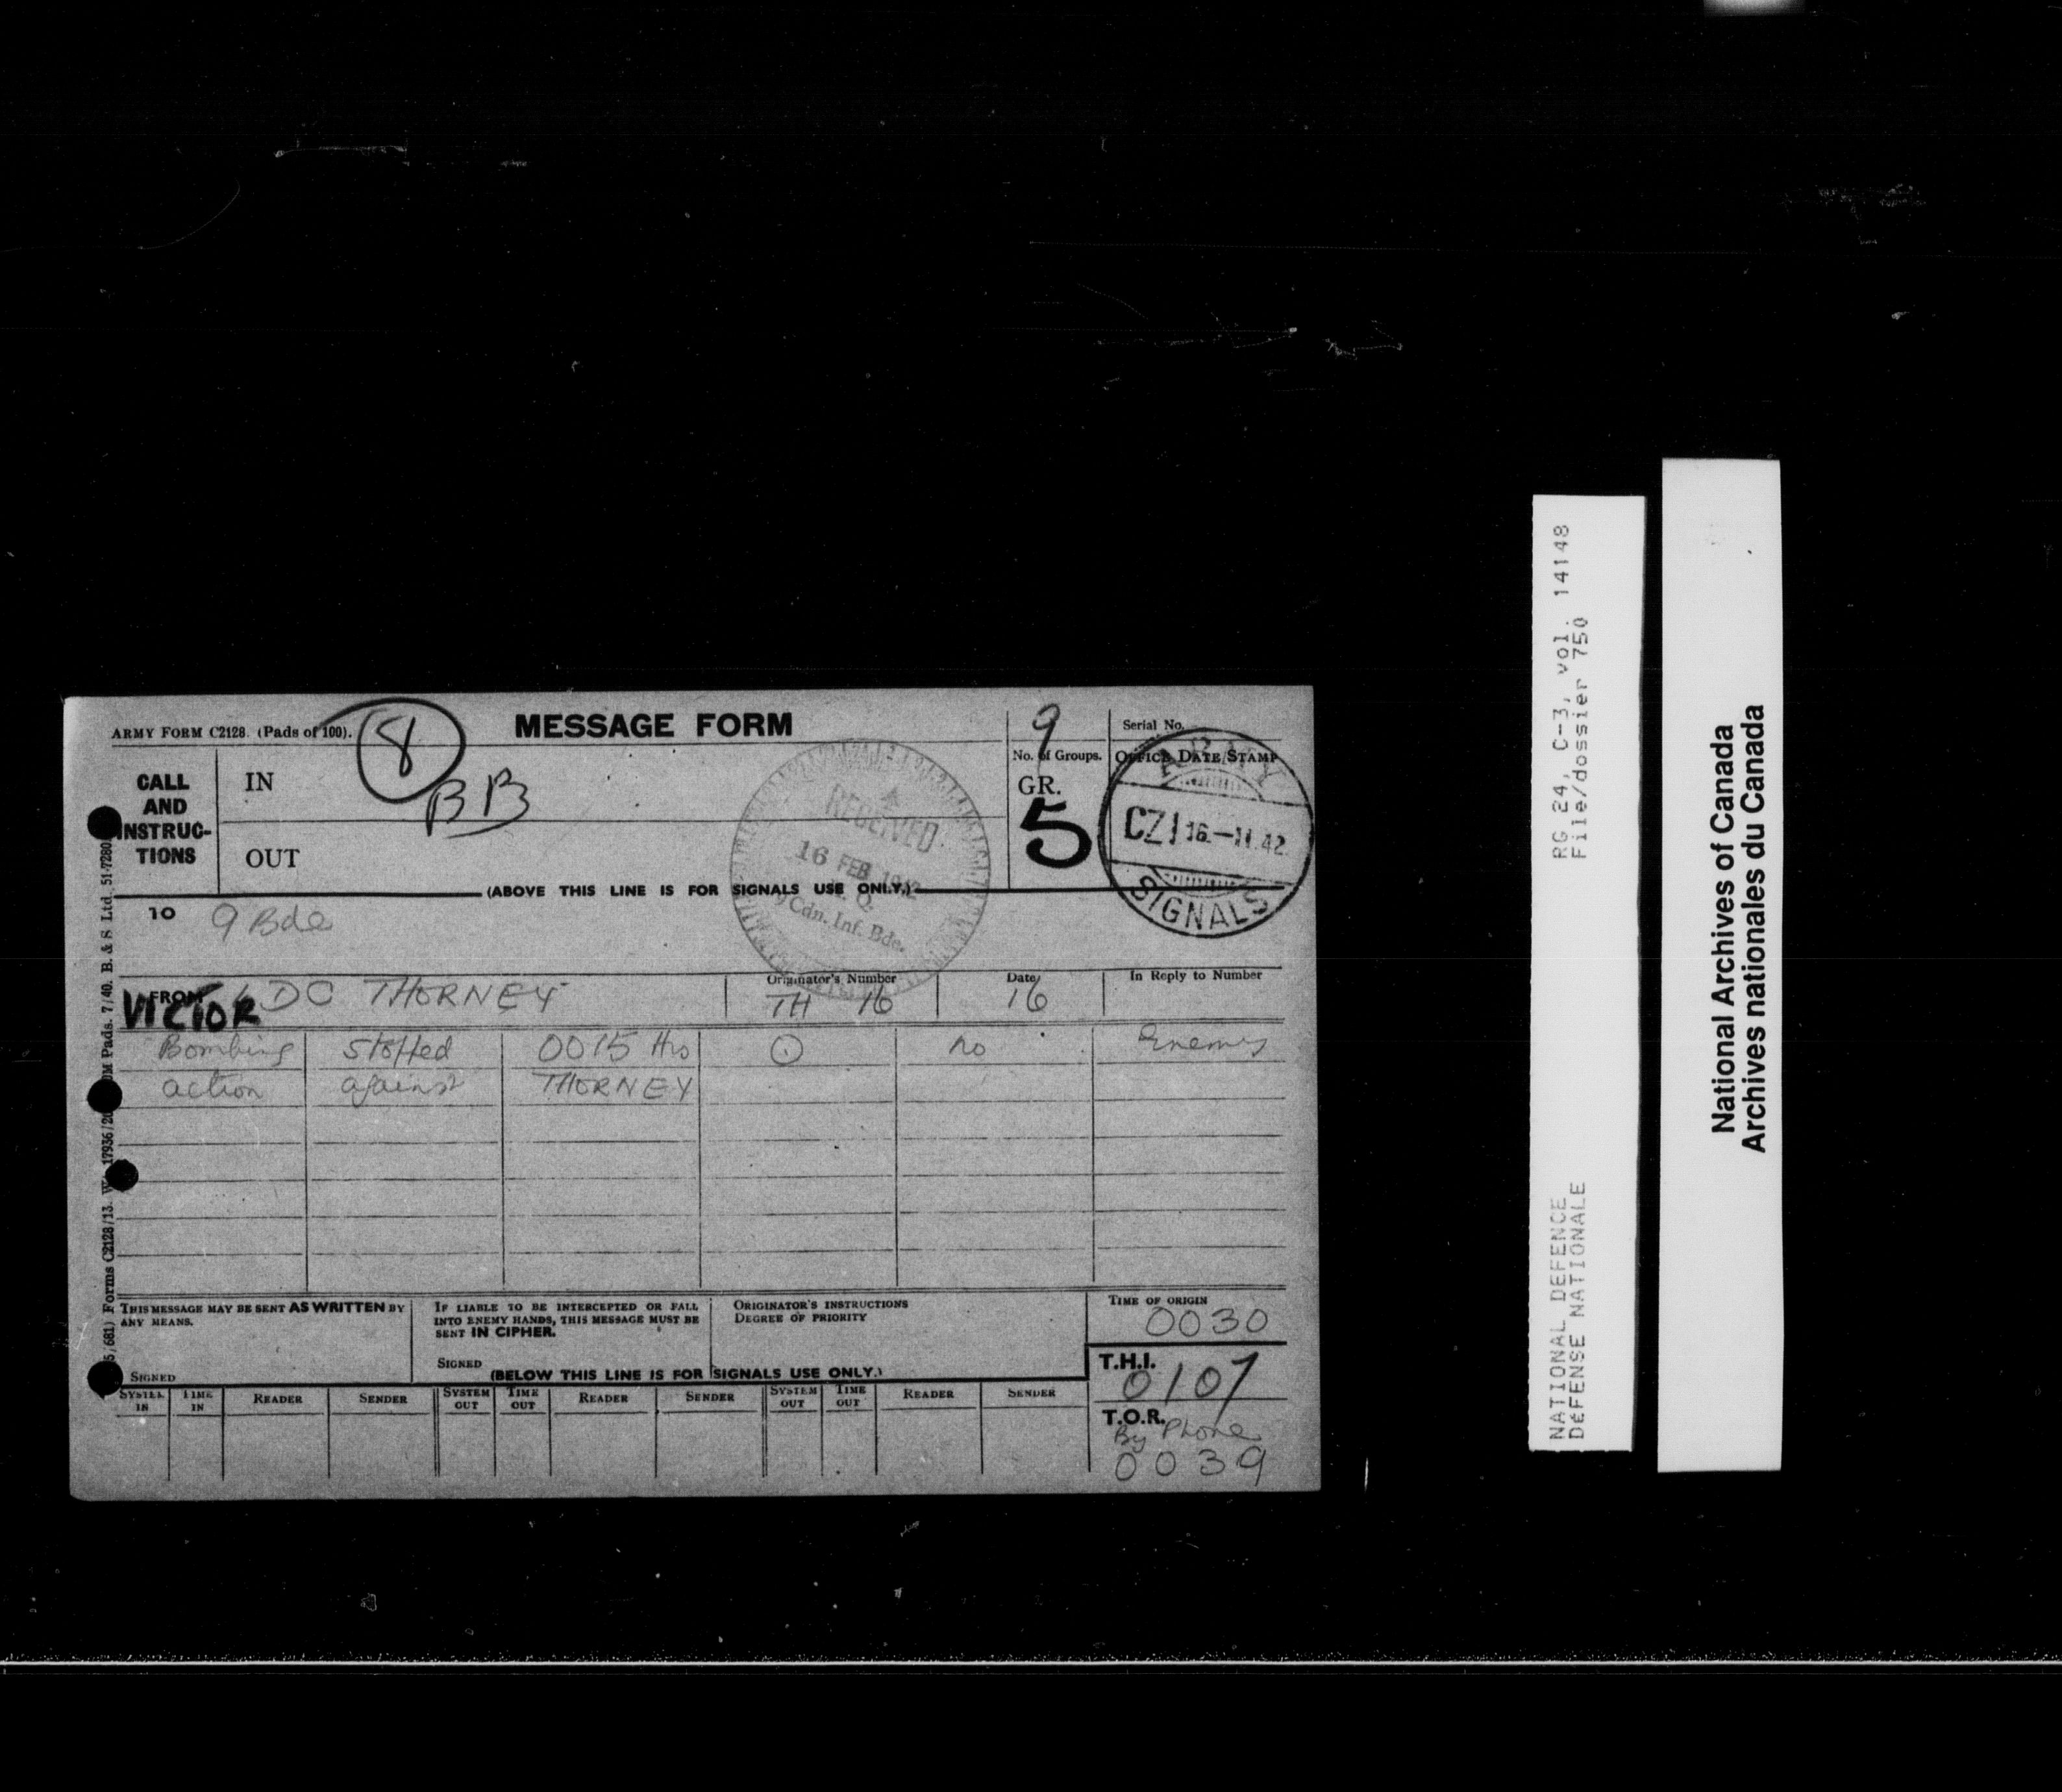 ARMY FORM C2128. (Pads of 100).
8
MESSAGE FORM
9
Serial No.
No. of Groups.
OFFICE DATE STAMP
CALL AND INSTRUC-TIONS
IN
BB
GR.
5
OUT
RECEIVED
16 FEB 1942
H. Q.
9 Cdn. Inf. Bde.
ARMY
CZ1 16.—11.42
SIGNALS
(ABOVE THIS LINE IS FOR SIGNALS USE ONLY.)
TO 9 Bde
FROM LDC THORNEY
VICTOR
Originator's Number
TH 16
Date
16
In Reply to Number
Bombing stopped 0015 Hrs ⊙ no Enemy
action against THORNEY
THIS MESSAGE MAY BE SENT AS WRITTEN BY
ANY MEANS.
SIGNED
IF LIABLE TO BE INTERCEPTED OR FALL
INTO ENEMY HANDS, THIS MESSAGE MUST BE
SENT IN CIPHER.
SIGNED
ORIGINATOR'S INSTRUCTIONS
DEGREE OF PRIORITY
TIME OF ORIGIN
0030
(BELOW THIS LINE IS FOR SIGNALS USE ONLY.)
T.H.I.
0107
SYSTEM IN TIME IN READER SENDER SYSTEM OUT TIME OUT READER SENDER SYSTEM OUT TIME OUT READER SENDER
T.O.R.
By Phone
0039
Forms C2128/13. 17936/20 Pads. 7/40. B. & S Ltd. 51-7280
RG 24, C-3, vol. 14148
File/dossier 750
NATIONAL DEFENCE
DéFENSE NATIONALE
National Archives of Canada
Archives nationales du Canada